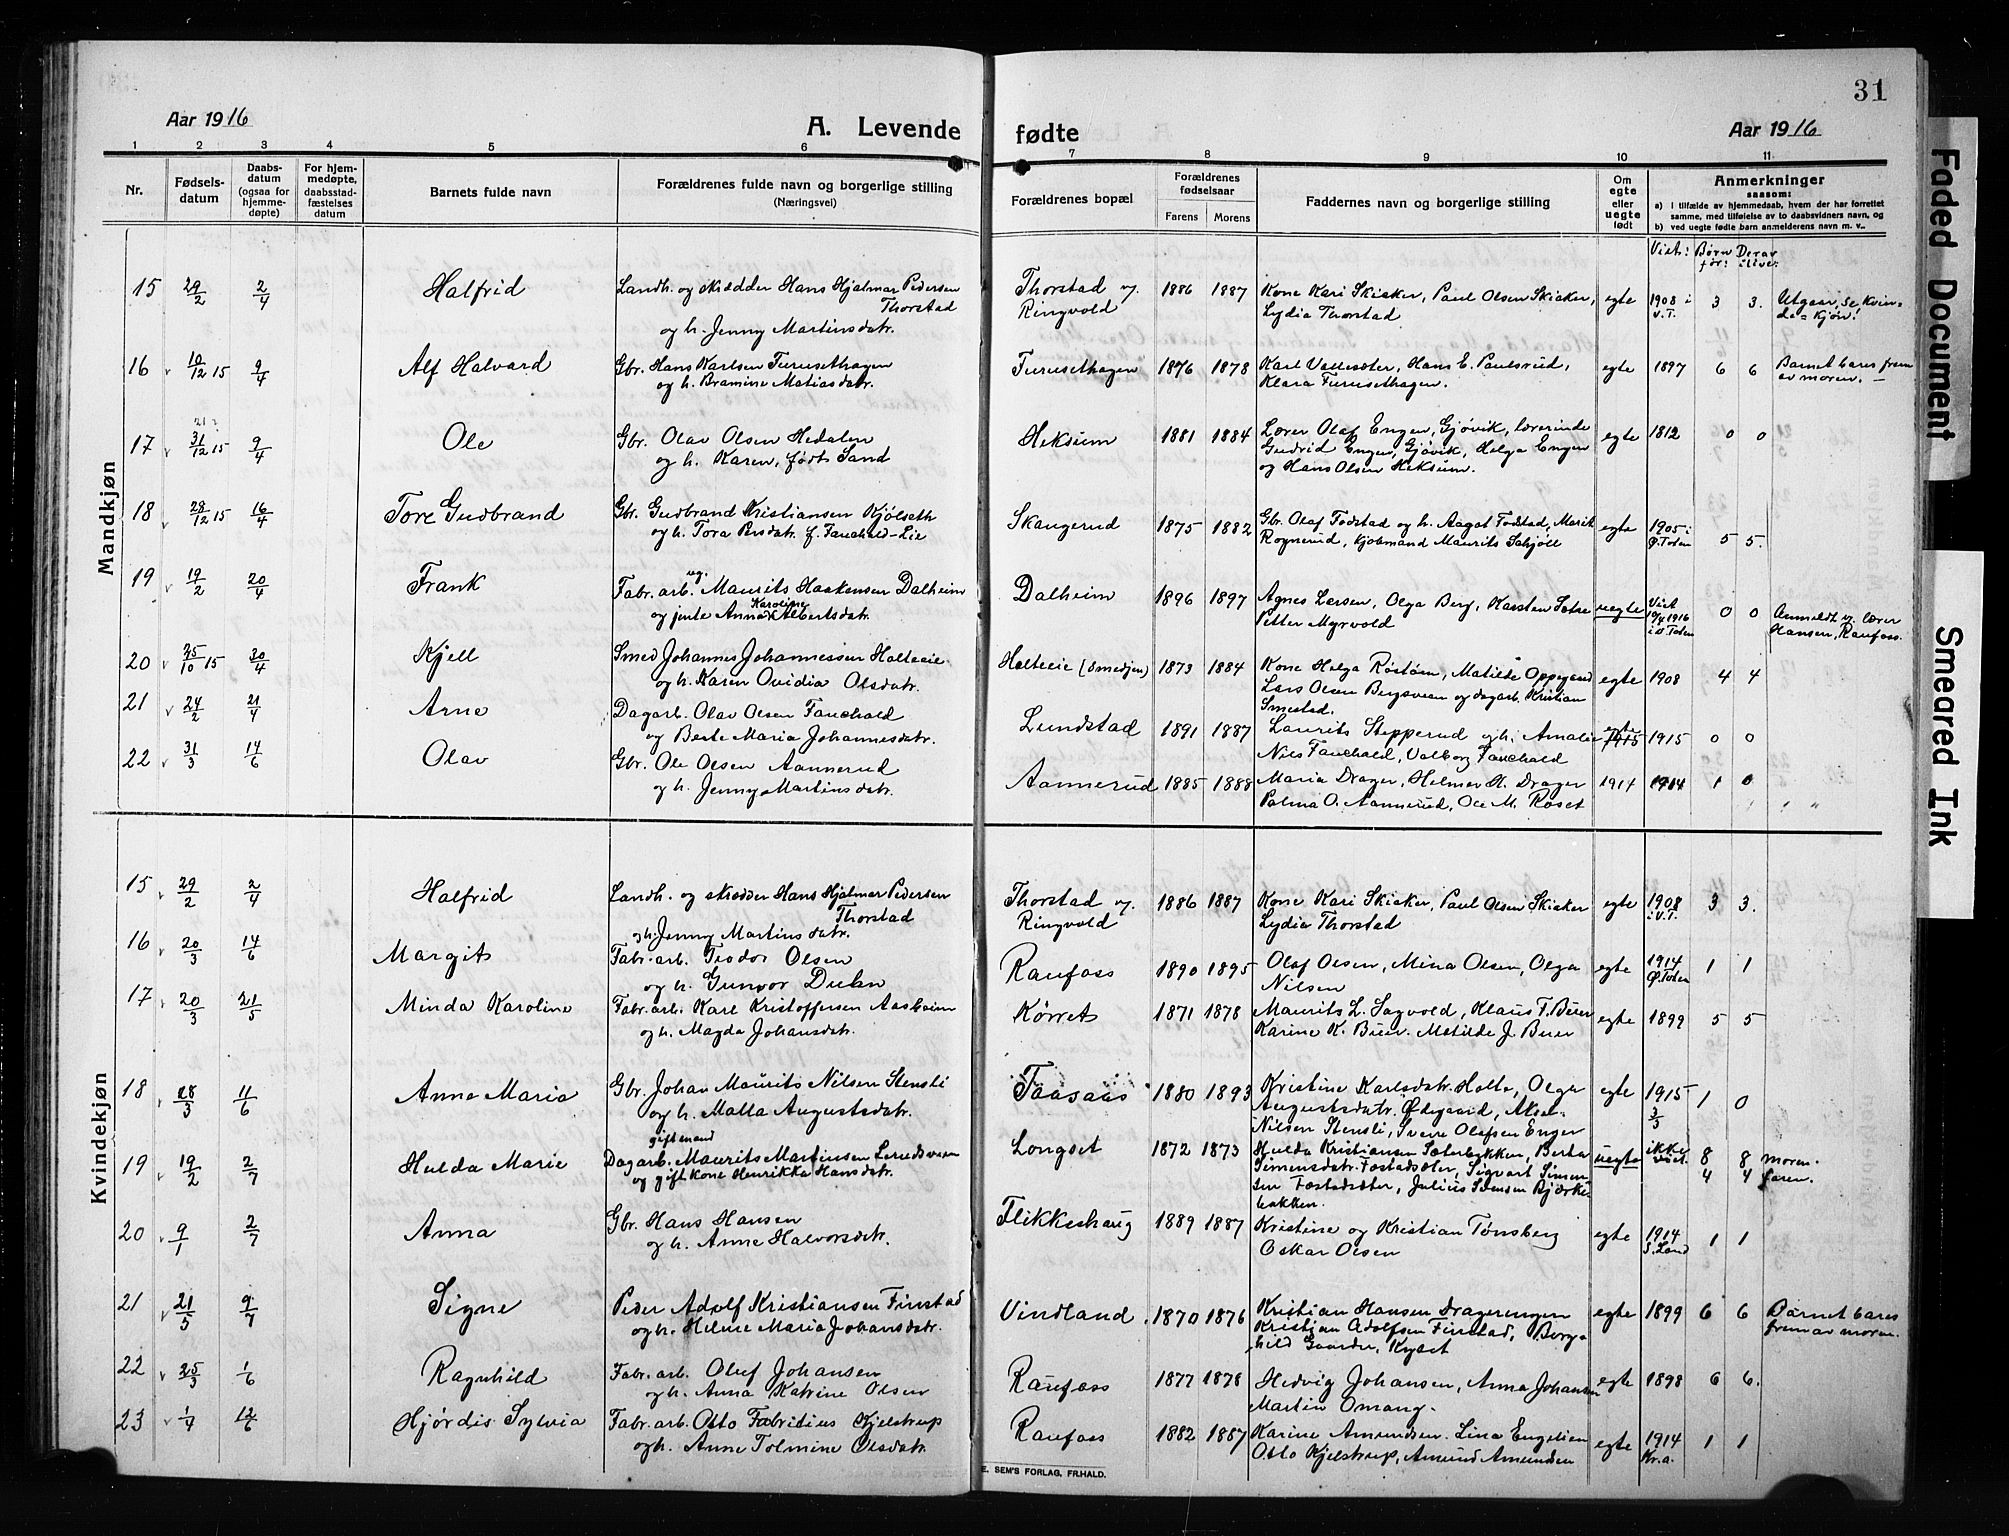 31
Aar 1916
A. Levende fødte
Aar 1916
1 2 3 4 5 6 7 8 9 10 11
Nr.
Fødsels-
datum
Daabs-
datum
(ogsaa for
hjemme-
døpte)
For hjem-
medøpte,
daabsstad-
fæstelses
datum
Barnets fulde navn
Forældrenes fulde navn og borgerlige stilling
(Næringsvei)
Forældrenes bopæl
Forældrenes
fødselsaar
Farens Morens
Faddernes navn og borgerlige stilling
Om
egte
eller
uegte
født
Anmerkninger
saasom:
a) i tilfælde av hjemmedaab, hvem der har forrettet
samme, med tilføielse av to daabsvidners navn, og
b) ved uegte fødte barn anmelderens navn m. v..
Viet: Børn Derav
før: ilive:
Mandkjøn
15 29/2 2/4 Halfrid Landh. og skrædder Hans Hjalmar Pedersen
Thorstad
og h. Jenny Martinsdatr.
Thorstad v. 1886 1887 Kone Kari Skiaker, Paul Olsen Skiaker, egte 1908 i 3 3. Utgaar, se kvin-
Ringvold Lydia Thorstad V.T. de = kjøn!
16 10/12 15 9/4 Alf Halvard Gbr. Hans Karlsen Furusethagen
og h. Bramine Matiasdatr.
Furusethagen 1876 1878 Karl Vallesæter, Hans E. Paulsrud, egte 1897 6 6 Barnet bares frem
Klara Furusethagen. av moren. —
17 31/12 15 9/4 Ole Gbr. Olav Olsen Hedalen
og h. Karen, født Sand
Heksum 1881 1884 Lærer Olaf Enger, Gjøvik, lærerinde egte 1812 0 0
Gudrid Enger, Gjøvik, Helga Enger
og Hans Olsen Heksum.
18 28/12 15 16/4 Tore Gudbrand Gbr. Gudbrand Kristiansen Kjølseth
og h. Tora Persdatr. f. Fauchald-Lie
Skangerud 1875 1882 Gbr. Olaf Fodstad og h. Aagot Fodstad, Marit egte 1905 i 5 5.
Rognerud, kjøbmand Maurits Schjøll Ø. Toten
19 19/2 20/4 Frank Fabr. arb. ug. Maurits Haakensen Dalheim
og jente Anna Karoline Albertsdatr.
Dalheim 1896 1897 Agnes Larsen, Olga Berg, Karsten Sætre uegte Viet 0 0 Anmeldt v. lærer
Petter Myrvold 1916 Hansen, Raufoss.
20 25/10 15 30/4 Kjell Smed Johannes Johannessen Holteeie
og h. Karen Ovidia Olsdatr.
Holteeie (Smedjen) 1873 1884 Kone Helga Røstøen, Matilde Oppegaard egte 1908 4 4
Lars Olsen Bergsveen og dagarb. Kristian
Smestad.
21 24/2 21/4 Arne Dagarb. Olav Olsen Fauchald
og Beate Maria Johannesdatr.
Lundstad 1891 1887 Laurits Stepperud og h. Amalie egte 1915 0 0
Nils Fauchald, Valborg Fauchald
22 31/3 14/6 Olav Gbr. Ole Olsen Aannerud
og h. Jenny Martinsdatr.
Aannerud 1885 1888 Maria Drager, Helmer H. Drager 1914 1914 1 0
Palma O. Aannerud, Ole M. Røset
Kvindekjøn
15 29/2 2/4 Halfrid Landh. og skrædder Hans Hjalmar Pedersen
Thorstad
og h. Jenny Martinsdatr.
Thorstad v. 1886 1887 Kone Kari Skiaker, Paul Olsen Skiaker egte 1908 3 3.
Ringvold Lydia Thorstad i V.T.
16 20/3 14/6 Margit Fabr. arb. Teodor Olsen
og h. Gunvor Dulin
Raufoss 1890 1895 Olaf Olsen, Mina Olsen, Olga egte 1914 1 1
Nilsen Ø. Toten
17 20/3 21/5 Minda Karoline Fabr. arb. Karl Kristoffersen Aasheim
og h. Magda Johansdatr.
Kørret 1871 1878 Maurits L. Sagvold, Klaus F. Buer egte 1899 5 5
Karine K. Buer. Matilde J. Buer
18 28/3 11/6 Anne Maria Gbr. Johan Maurits Nilsen Stensli
og h. Malla Augustsdatr.
Taasaas 1880 1893 Kristine Karlsdatr. Holte, Olga egte 1915 1 0
Augustsdatr. Ødegaard, Aksel 3/3
Nilsen Stensli, Sverre Olafsen Enger
19 19/2 2/7 Hulda Marie gift mand
Dagarb. Maurits Martinsen Lerudsveen
og gift kone Henrikka Hansdatr.
Longset 1872 1873 Hulda Kristiansen Sæterbakken, Berta uegte ikke 8 8 moren.
Simensdatr. Fostadsæter, Sigvart Simen- viet. 4 4 faren.
sen Fostadsæter, Julius Stensen Bjørke-
bakken.
20 9/1 2/7 Anna Gbr. Hans Hansen
og h. Anne Halvorsdatr.
Flikkeshaug 1889 1887 Kristine og Kristian Tønsberg egte 1914 1 1
Oskar Olsen S. Land
21 21/5 9/7 Signe Peder Adolf Kristiansen Finstad
og h. Helene Maria Johansdatr.
Vindland. 1870 1876 Kristian Hansen Dragerengen egte 1899 6 6 Barnet bares
Kristian Adolfsen Finstad, Borg- frem av moren.
hild Gaarder, Kyset
22 25/3 1/6 Ragnhild Fabr. arb. Oluf Johansen
og h. Anna Katrine Olsen
Raufoss 1877 1878 Hedvig Johansen, Anna Johansen egte 1898 6 6.
Martin Omang.
23 1/4 12/6 Hjørdis Sylvia Fabr. arb. Otto Fabritius Kjelstrup
og h. Anne Tolmine Olsdatr.
Raufoss 1882 1887 Karine Amundsen. Lina Engelien egte 1914 1 1
Otto Kjelstrup, Amund Amundsen Kr.a.
E. SEM'S FORLAG, FR.HALD.
Faded Document
Smeared Ink